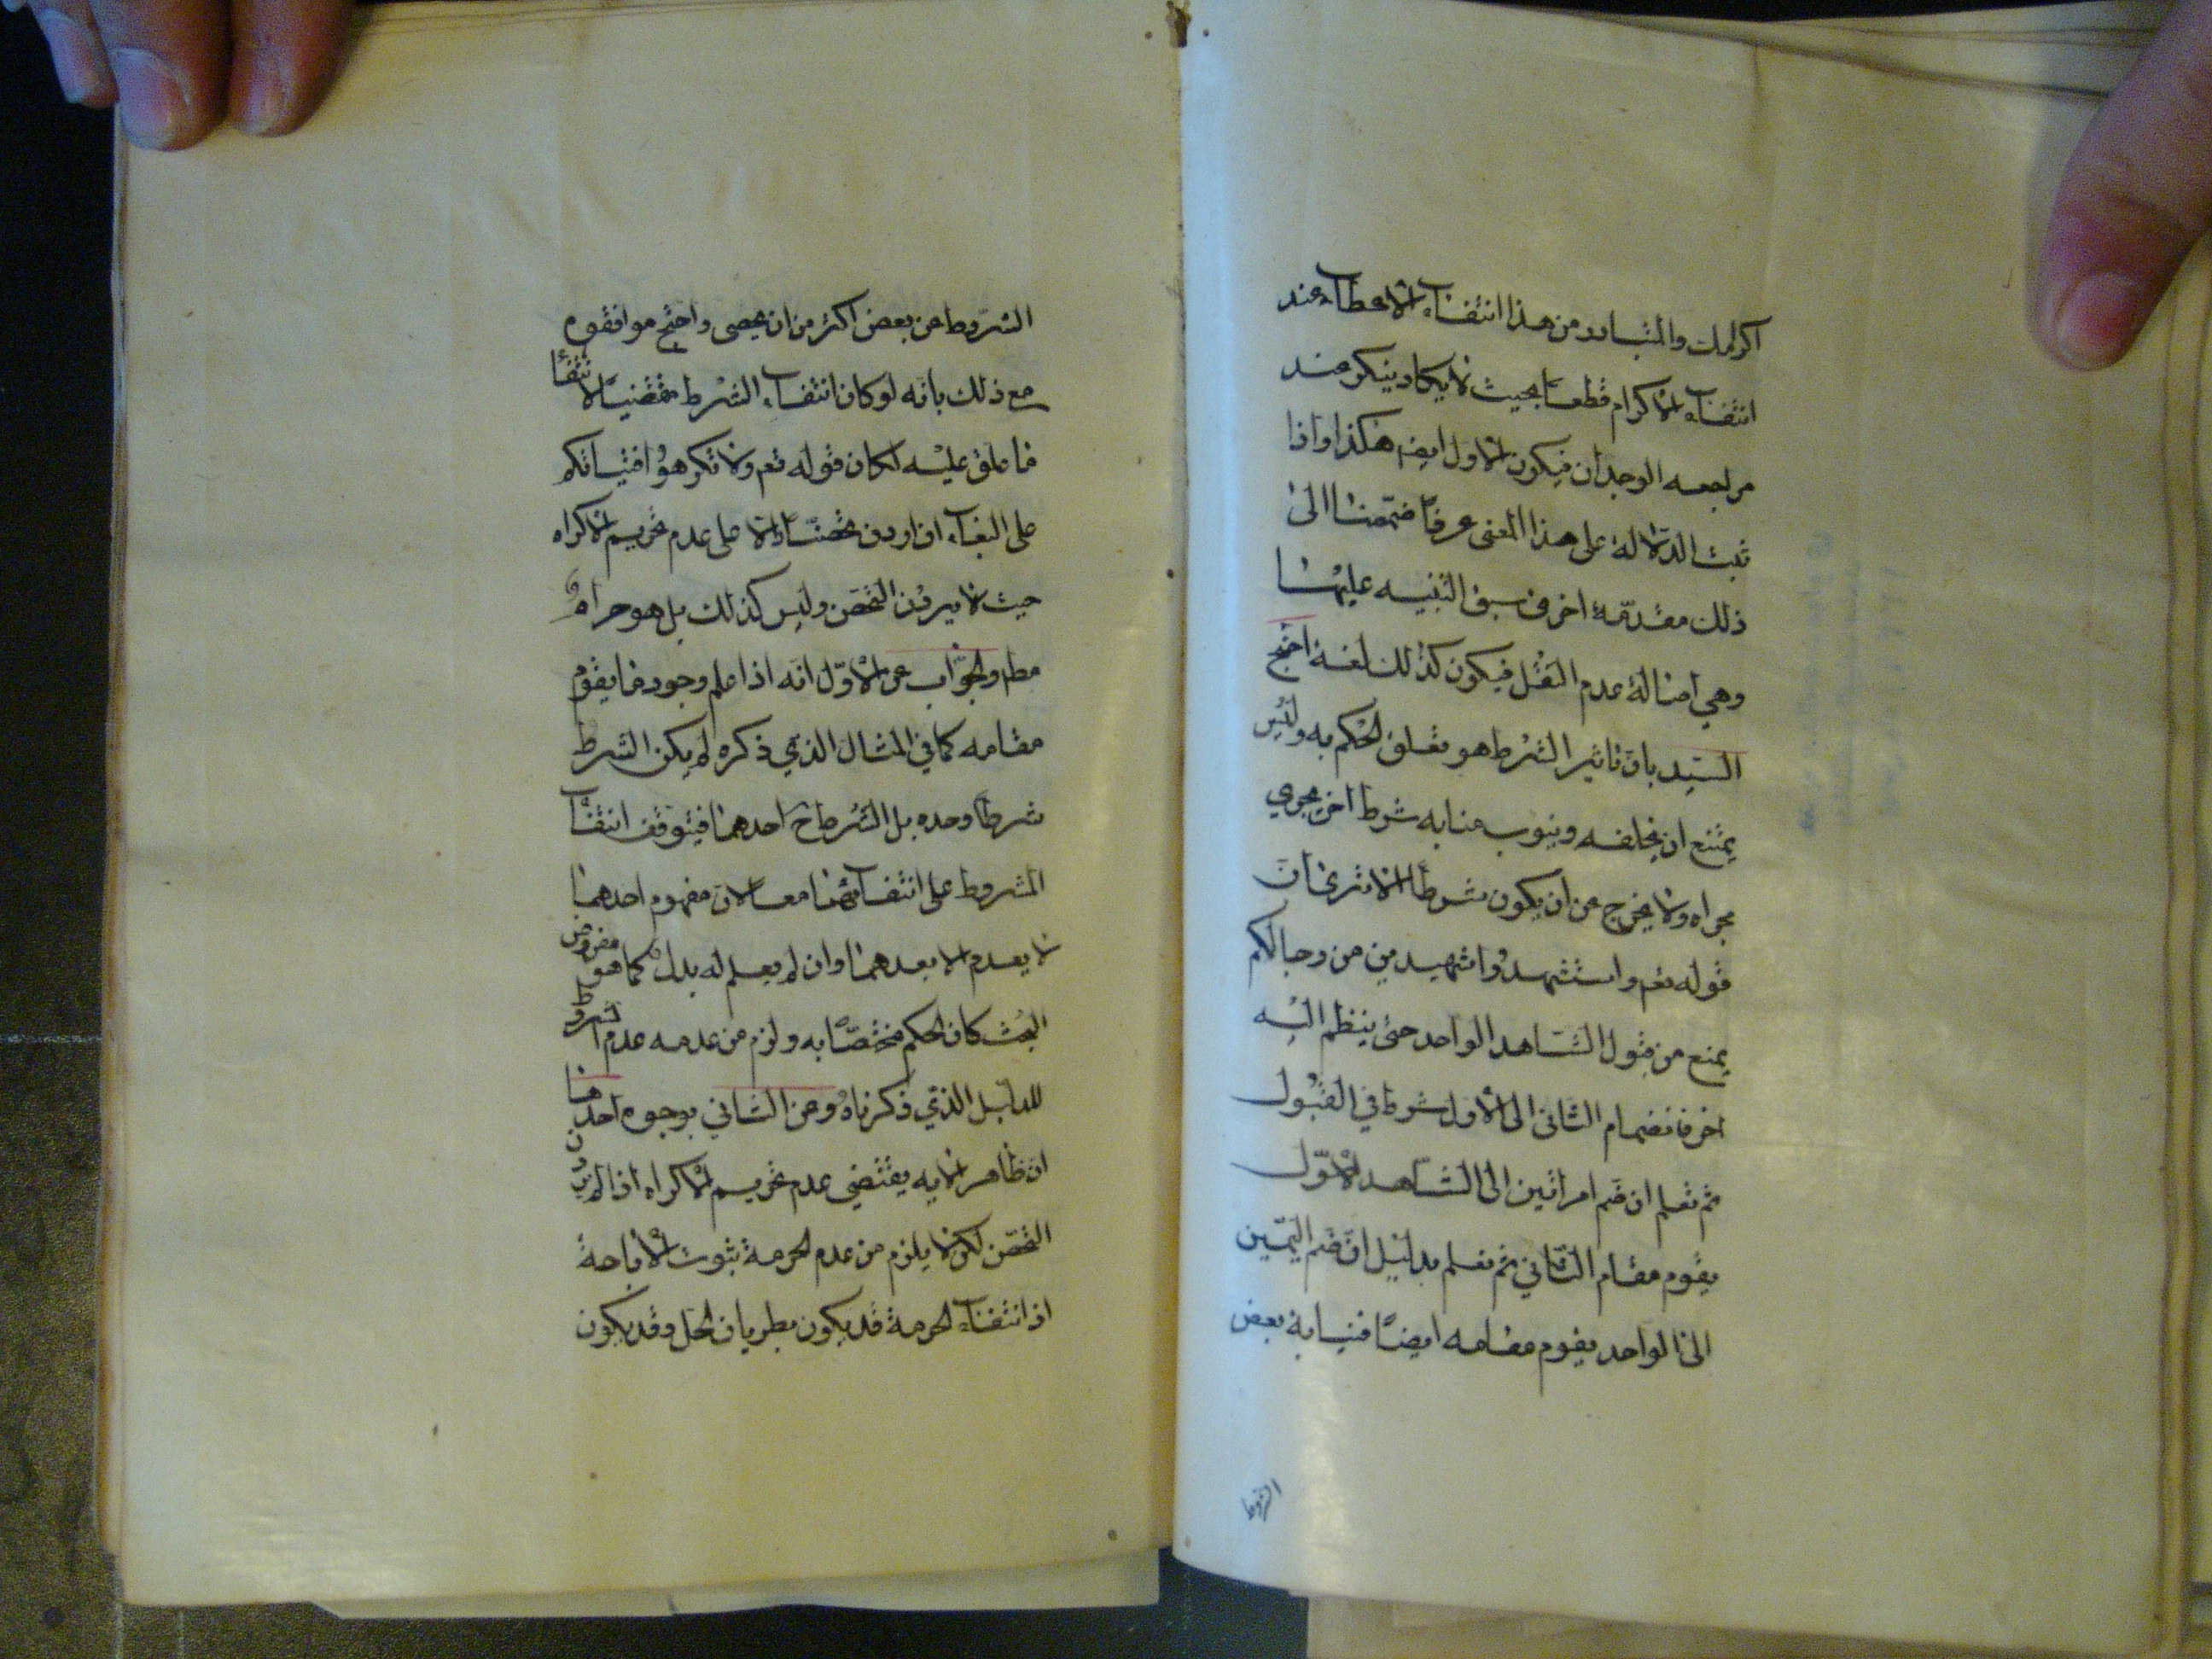 اكرامك والمتبادر من هذا انتفاء الاعطاء عند
انتفاء الاكرام قطعا بحيث لا يكاد ينكر عند
مراجعه الوجدان فيكون الاول ايض هكذا واذا
ثبت الدلالة على هذا المعنى عرفا ضممنا الى
ذلك مقدمة اخرى سبق التنبيه عليها
وهي اصالة عدم النقل فيكون كذلك لغة احتج
السيد بان تاثير الشرط هو تعلق الحكم به وليس
يمتنع ان يخلفه وينوب منابه شرط اخر يجري
مجراه ولا يخرج عن ان يكون شرطا الا ترى ان
قوله تعم واستشهدوا شهيدين من رجالكم
يمنع من قبول الشاهد الواحد حتى ينظم اليه
اخر فانضمام الثاني الى الاول شرط في القبول
ثم تعلم ان ضم امراتين الى الشاهد الاول
يقوم مقام الثاني ثم نعلم بدليل ان ضم اليمين
الى الواحد يقوم مقامه ايضا فنيابة بعض
الشروط
الشروط عن بعض اكثر من ان يحصى واحتج موافقوه
مع ذلك بانه لو كان انتفاء الشرط مقتضيا لانتفأ
ما علق عليه لكان قوله تعم ولا تكرهوا فتياتكم
على البغاء ان اردن تحصنا دالا على عدم تحريم الاكراه
حيث لا يردن التحصن وليس كذلك بل هو حرام
مطم والجواب عن الاول انه اذا علم وجود ما يقوم
مقامه كما في المثال الذي ذكره لم يكن الشرط
شرطا وحده بل الشرط ح احدهما فيتوقف انتفاء
المشروط على انتفائهما معا لان مفهوم احدهما
لا يعدم الا بعدهما وان لم يعلم له بدل كما هو مفروض
البحث كان الحكم مختصا به ولزم من عدمه عدم المشروط
للدليل الذي ذكرناه وعن الثاني بوجوه احدها
ان ظاهر الايه يقتضي عدم تحريم الاكراه اذا لم يردن
التحصن لكن لا يلزم من عدم الحرمة ثبوت الاباحة
اذ انتفاء الحرمة قد يكون بطريان الحل وقد يكون